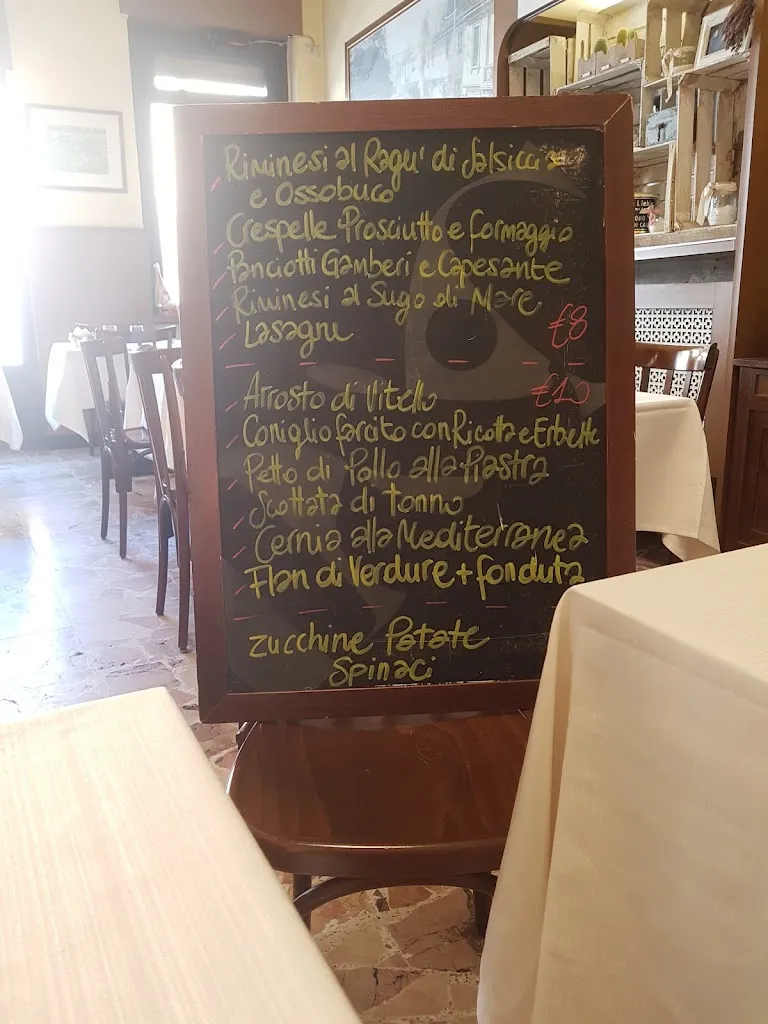 Riminesi al Ragu' di Salsiccia
e Ossobuco
Crespelle Prosciutto e formaggio
Panciotti Gamberi e Capesante
Riminesi al Sugo di Mare
Lasagne
€8
€10
Arrosto di Vitello
Coniglio farcito con Ricotta e Erbette
Petto di Pollo alla Piastra
Scottata di tonno
Cernia alla Mediterranea
Flan di Verdure + fonduta
Zucchine Patate
Spinaci